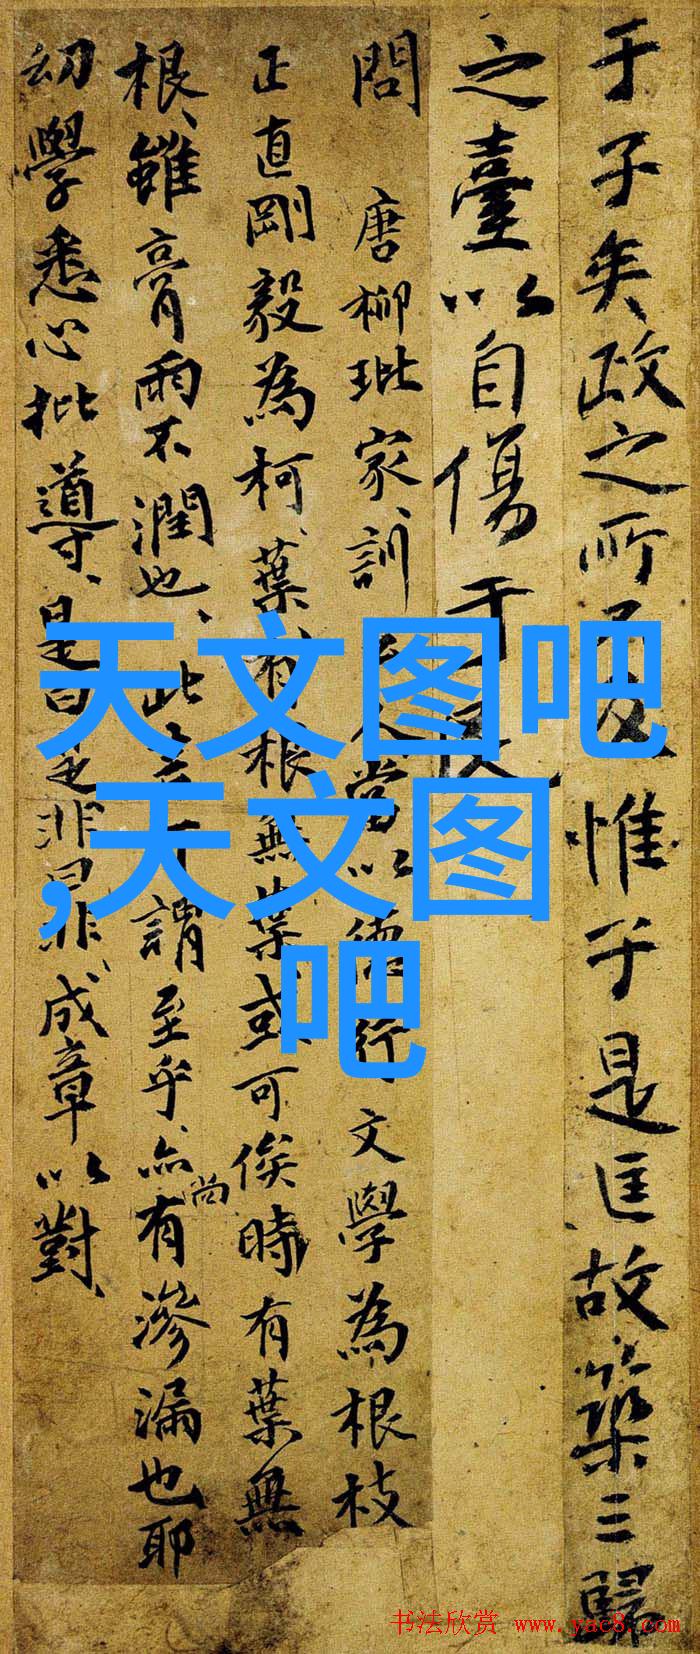 于子矣政之所及惟于是匡故築三歸
之臺以自傷于
問 唐柳玭家訓當以德行文學為根枝
正直剛毅為柯、葉有根無葉或可俟時有葉無
根、雖膏雨不潤也、此謂至乎、亦尚有滲漏也耶
幼學悉心批導、是曰非成章以對、
天文图吧
,天文图
吧
书法欣赏 www.yac8.com